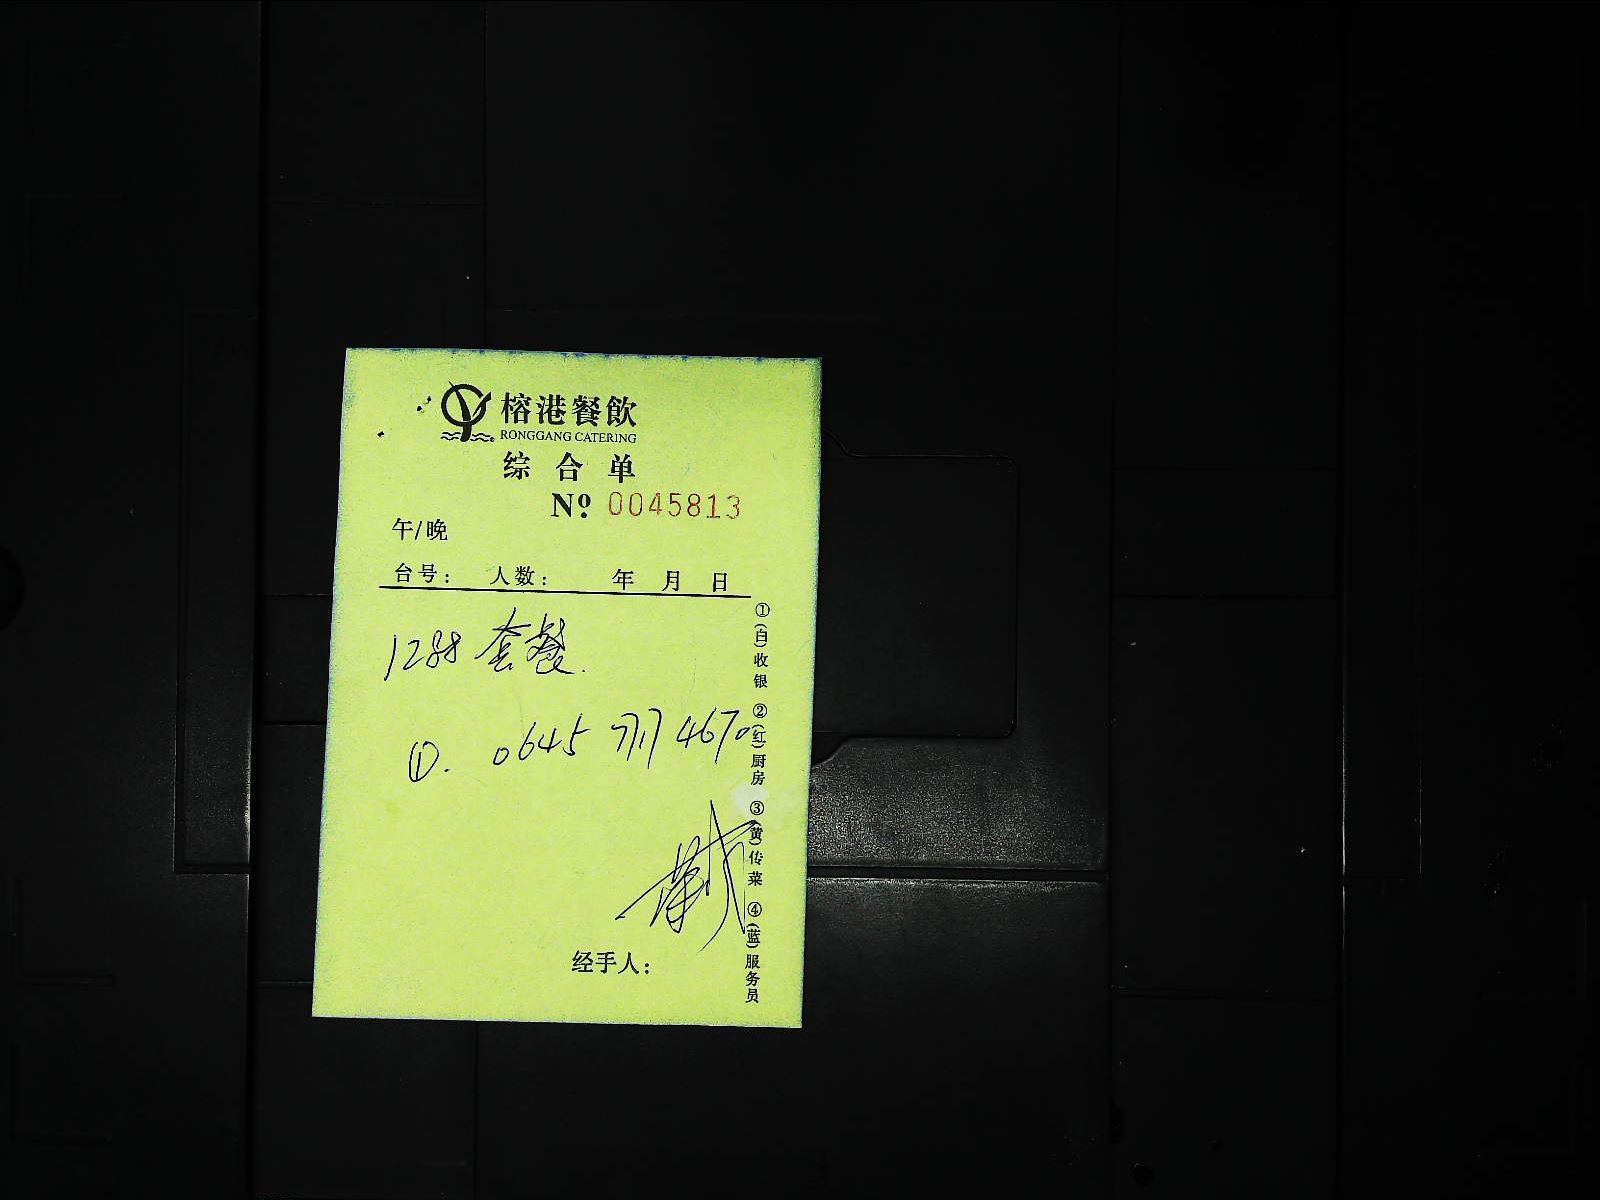 榕港餐飲
RONGGANG CATERING
综合单
Nº 0045813
午/晚
台号： 人数： 年 月 日
1288 套餐.
①. 0645 7717 4670
经手人：
①(白)收银 ②(红)厨房 ③(黄)传菜 ④(蓝)服务员